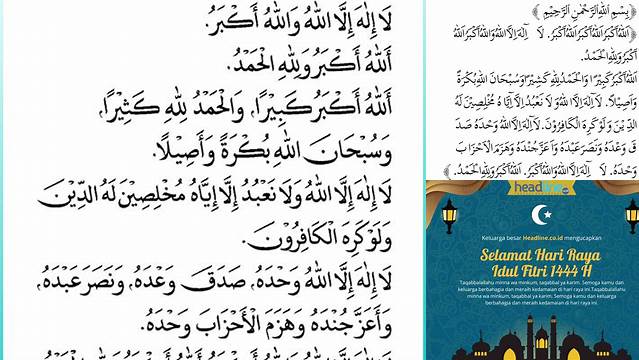 لَا إِلٰهَ إِلَّا اللهُ وَاللهُ أَكْبَرُ،
اَللهُ أَكْبَرُ وَلِلهِ الْحَمْدُ.
اَللهُ أَكْبَرُ كَبِيْرًا، وَالْحَمْدُ لِلهِ كَثِيْرًا،
وَسُبْحَانَ اللهِ بُكْرَةً وَأَصِيْلًا.
لَا إِلٰهَ إِلَّا اللهُ وَلَا نَعْبُدُ إِلَّا إِيَّاهُ مُخْلِصِيْنَ لَهُ الدِّيْنَ
وَلَوْ كَرِهَ الْكَافِرُوْنَ.
لَا إِلٰهَ إِلَّا اللهُ وَحْدَهُ، صَدَقَ وَعْدَهُ، وَنَصَرَ عَبْدَهُ،
وَأَعَزَّ جُنْدَهُ وَهَزَمَ الْأَحْزَابَ وَحْدَهُ.
﴿بِسْمِ اللهِ الرَّحْمٰنِ الرَّحِيْمِ﴾
﴿اَللهُ أَكْبَرُ اَللهُ أَكْبَرُ اَللهُ أَكْبَرُ. لَا إِلٰهَ إِلَّا اللهُ وَاللهُ أَكْبَرُ اَللهُ
أَكْبَرُ وَلِلهِ الْحَمْدُ.
اَللهُ أَكْبَرُ كَبِيْرًا، وَالْحَمْدُ لِلهِ كَثِيْرًا وَسُبْحَانَ اللهِ بُكْرَةً
وَأَصِيْلًا. لَا إِلٰهَ إِلَّا اللهُ وَلَا نَعْبُدُ إِلَّا إِيَّاهُ مُخْلِصِيْنَ لَهُ
الدِّيْنَ وَلَوْ كَرِهَ الْكَافِرُوْنَ. لَا إِلٰهَ إِلَّا اللهُ وَحْدَهُ صَدَ
قَ وَعْدَهُ وَنَصَرَ عَبْدَهُ وَأَعَزَّ جُنْدَهُ وَهَزَمَ الْأَحْزَابَ
وَحْدَهُ. لَا إِلٰهَ إِلَّا اللهُ وَاللهُ أَكْبَرُ. اَللهُ أَكْبَرُ وَلِلهِ الْحَمْدُ. ﴾
headline
Keluarga besar Headline.co.id mengucapkan
Selamat Hari Raya
Idul Fitri 1444 H
Taqabbalallahu minna wa minkum, taqabbal ya karim. Semoga kamu dan
keluarga berbahagia dan meraih kedamaian di hari raya ini.Taqabbalallahu
minna wa minkum, taqabbal ya karim. Semoga kamu dan keluarga
berbahagia dan meraih kedamaian di hari raya ini.